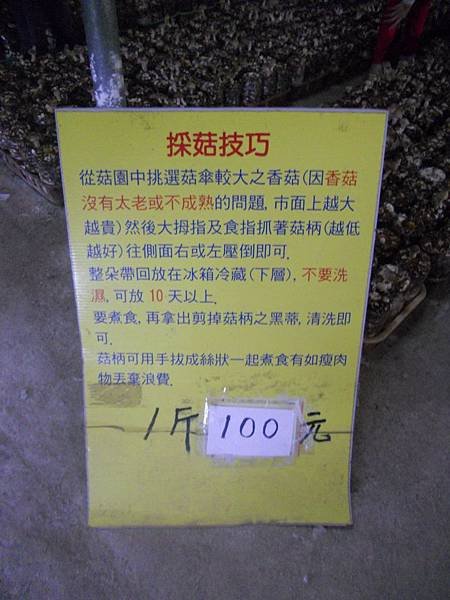 採菇技巧
從菇園中挑選菇傘較大之香菇(因香菇
沒有太老或不成熟的問題, 市面上越大
越貴)然後大拇指及食指抓著菇柄(越低
越好)往側面右或左壓倒即可.
整朵帶回放在冰箱冷藏(下層), 不要洗
濕, 可放 10 天以上.
要煮食, 再拿出剪掉菇柄之黑蒂, 清洗即
可.
菇柄可用手拔成絲狀一起煮食有如瘦肉
物丟棄浪費.
1斤 100 元